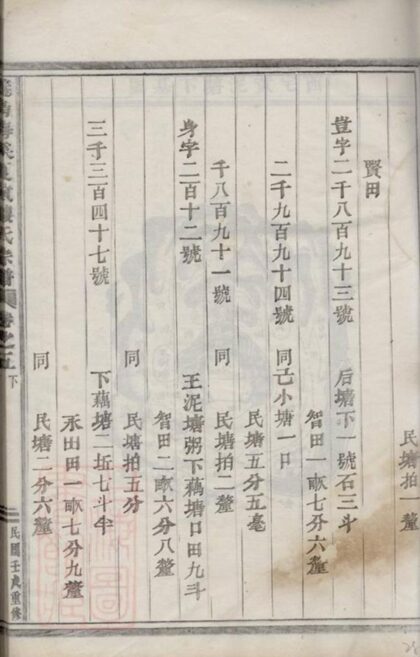 民塘拍一釐
賢田
豈字二千八百九十三號　后塘下一號石三斗
智田一畝七分六釐
二千九百九十四號　同己小塘一口
民塘五分五毫
千八百九十一號　同　民塘拍二釐
身字二百十二號　王泥塘粥下藕塘口田九斗
智田二畝六分八釐
同　民塘拍五分
三千三百四十七號　下藕塘二坵七斗半
永田田一畝七分九釐
同　民塘二分六釐
氏宗譜
卷之五
下
二
民國壬戌重修